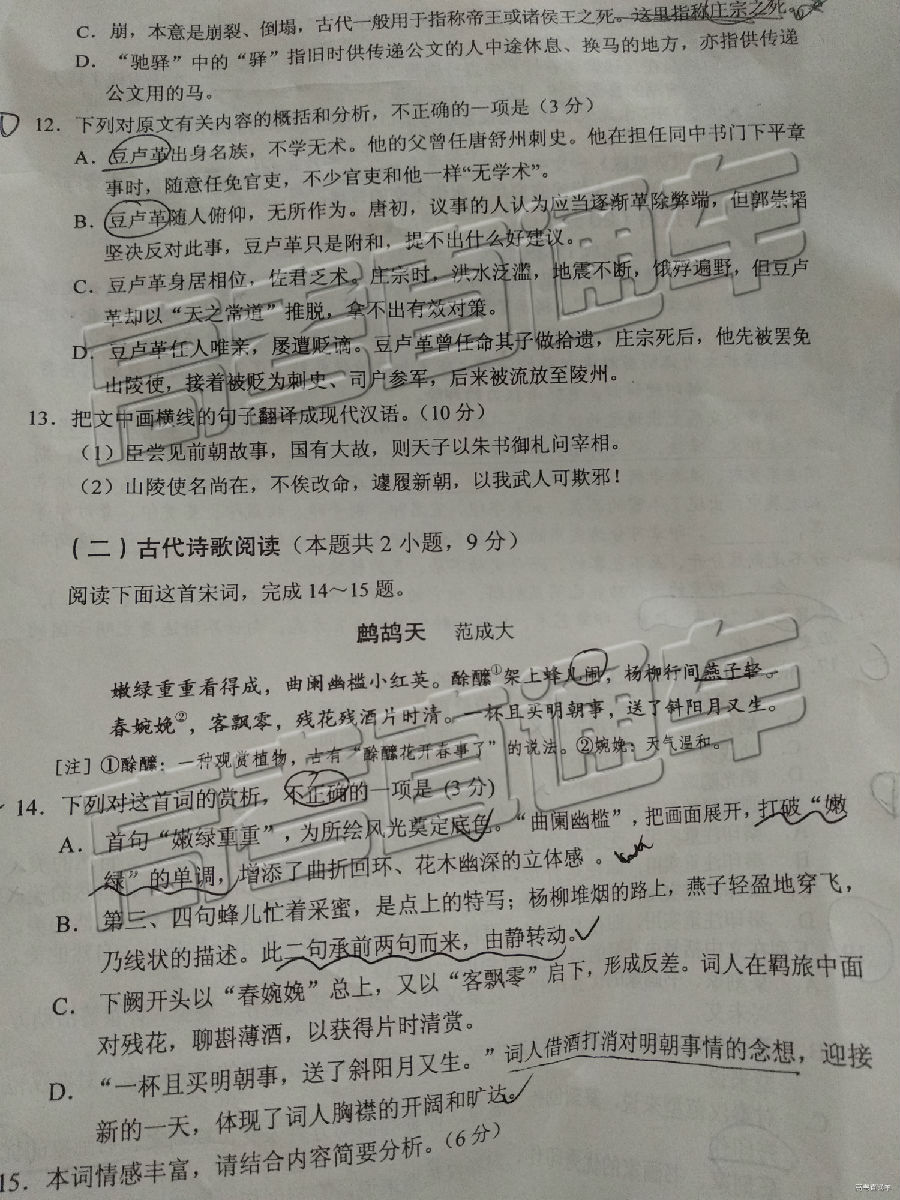 C．崩，本意是崩裂、倒塌，古代一般用于指称帝王或诸侯王之死。这里指称庄宗之死。
D．“驰驿”中的“驿”指旧时供传递公文的人中途休息、换马的地方，亦指供传递
公文用的马。
12．下列对原文有关内容的概括和分析，不正确的一项是（3 分）
A．豆卢革出身名族，不学无术。他的父曾任唐舒州刺史。他在担任同中书门下平章
事时，随意任免官吏，不少官吏和他一样“无学术”。
B．豆卢革随人俯仰，无所作为。唐初，议事的人认为应当逐渐革除弊端，但郭崇韬
坚决反对此事，豆卢革只是附和，提不出什么好建议。
C．豆卢革身居相位，佐君乏术。庄宗时，洪水泛滥，地震不断，饿殍遍野，但豆卢
革却以“天之常道”推脱，拿不出有效对策。
D．豆卢革任人唯亲，屡遭贬谪。豆卢革曾任命其子做拾遗，庄宗死后，他先被罢免
山陵使，接着被贬为刺史、司户参军，后来被流放至陵州。
13．把文中画横线的句子翻译成现代汉语。（10 分）
（1）臣尝见前朝故事，国有大故，则天子以朱书御札问宰相。
（2）山陵使名尚在，不俟改命，遽履新朝，以我武人可欺邪！
（二）古代诗歌阅读（本题共 2 小题，9 分）
阅读下面这首宋词，完成 14～15 题。
鹧鸪天 范成大
嫩绿重重看得成，曲阑幽槛小红英。酴醾①架上蜂儿闹，杨柳行间燕子轻。
春婉娩②，客飘零，残花残酒片时清。一杯且买明朝事，送了斜阳月又生。
[注] ①酴醾：一种观赏植物，古有“酴醾花开春事了”的说法。②婉娩：天气温和。
14．下列对这首词的赏析，不正确的一项是 (3 分)
A．首句“嫩绿重重”，为所绘风光奠定底色。“曲阑幽槛”，把画面展开，打破“嫩
绿”的单调，增添了曲折回环、花木幽深的立体感 。
B．第三、四句蜂儿忙着采蜜，是点上的特写；杨柳堆烟的路上，燕子轻盈地穿飞，
乃线状的描述。此二句承前两句而来，由静转动。
C．下阕开头以“春婉娩”总上，又以“客飘零”启下，形成反差。词人在羁旅中面
对残花，聊斟薄酒，以获得片时清赏。
D．“一杯且买明朝事，送了斜阳月又生。”词人借酒打消对明朝事情的念想，迎接
新的一天，体现了词人胸襟的开阔和旷达。
15．本词情感丰富，请结合内容简要分析。（6 分）
高考直通车
高考直通车